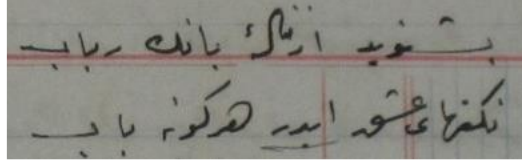 بشنوید از نالهٔ بانک رباب
نکتهای عشق اندر هرگونه باب